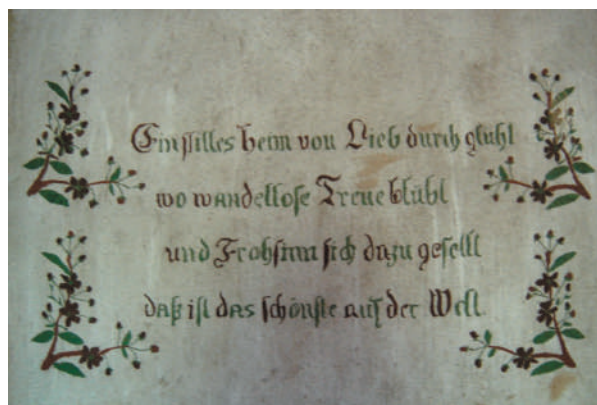 Ein stilles Heim von Lieb durch glüht
wo wandellose Treue blüht
und Frohsinn sich dazu gesellt
daß ist das schönste auf der Welt.